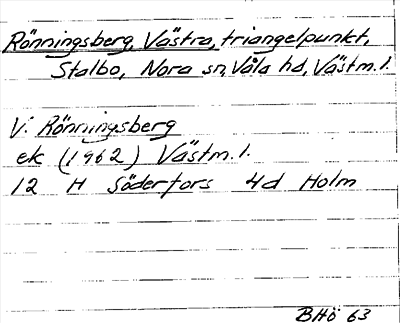 Rönningsberg, Västra, triangelpunkt,
Stalbo, Nora sn, Våla hd, Västm. l.
V. Rönningsberg
ek (1962) Västm. l.
12 H Söderfors 4d Holm
BHö 63